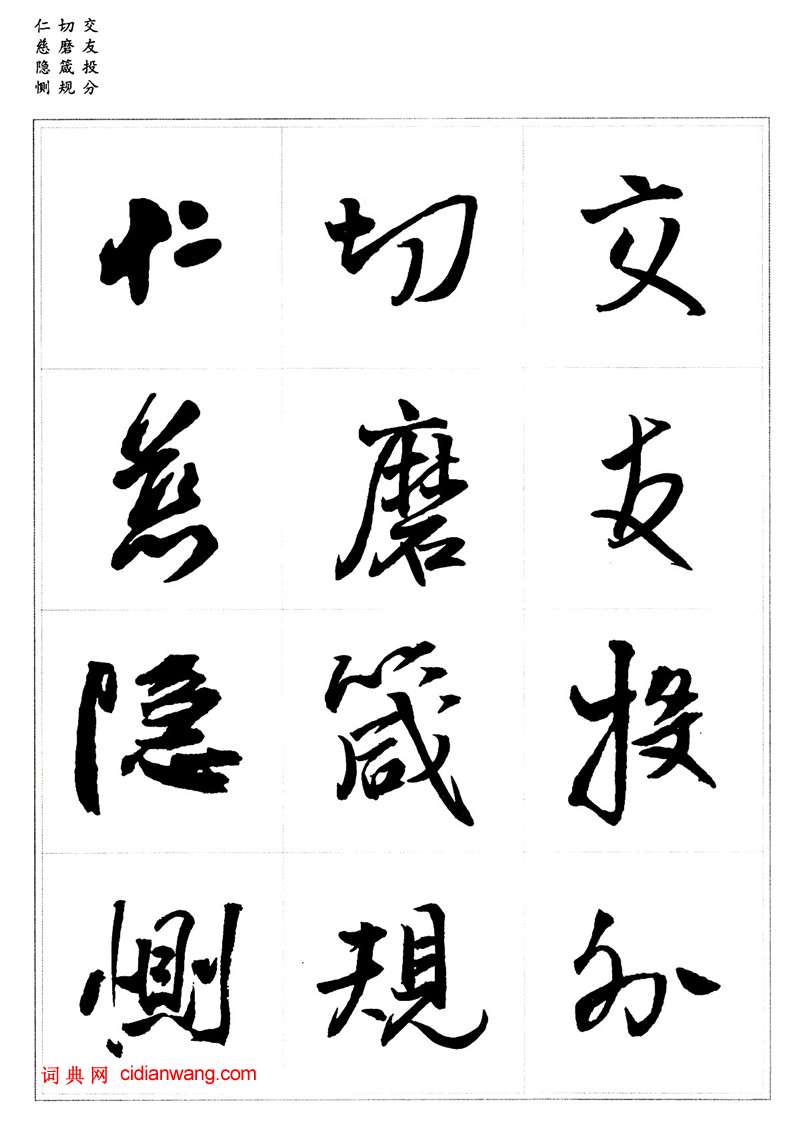 交友投分
切磨箴规
仁慈隐恻
交友投分
切磨箴規
仁慈隐惻
词典网 cidianwang.com